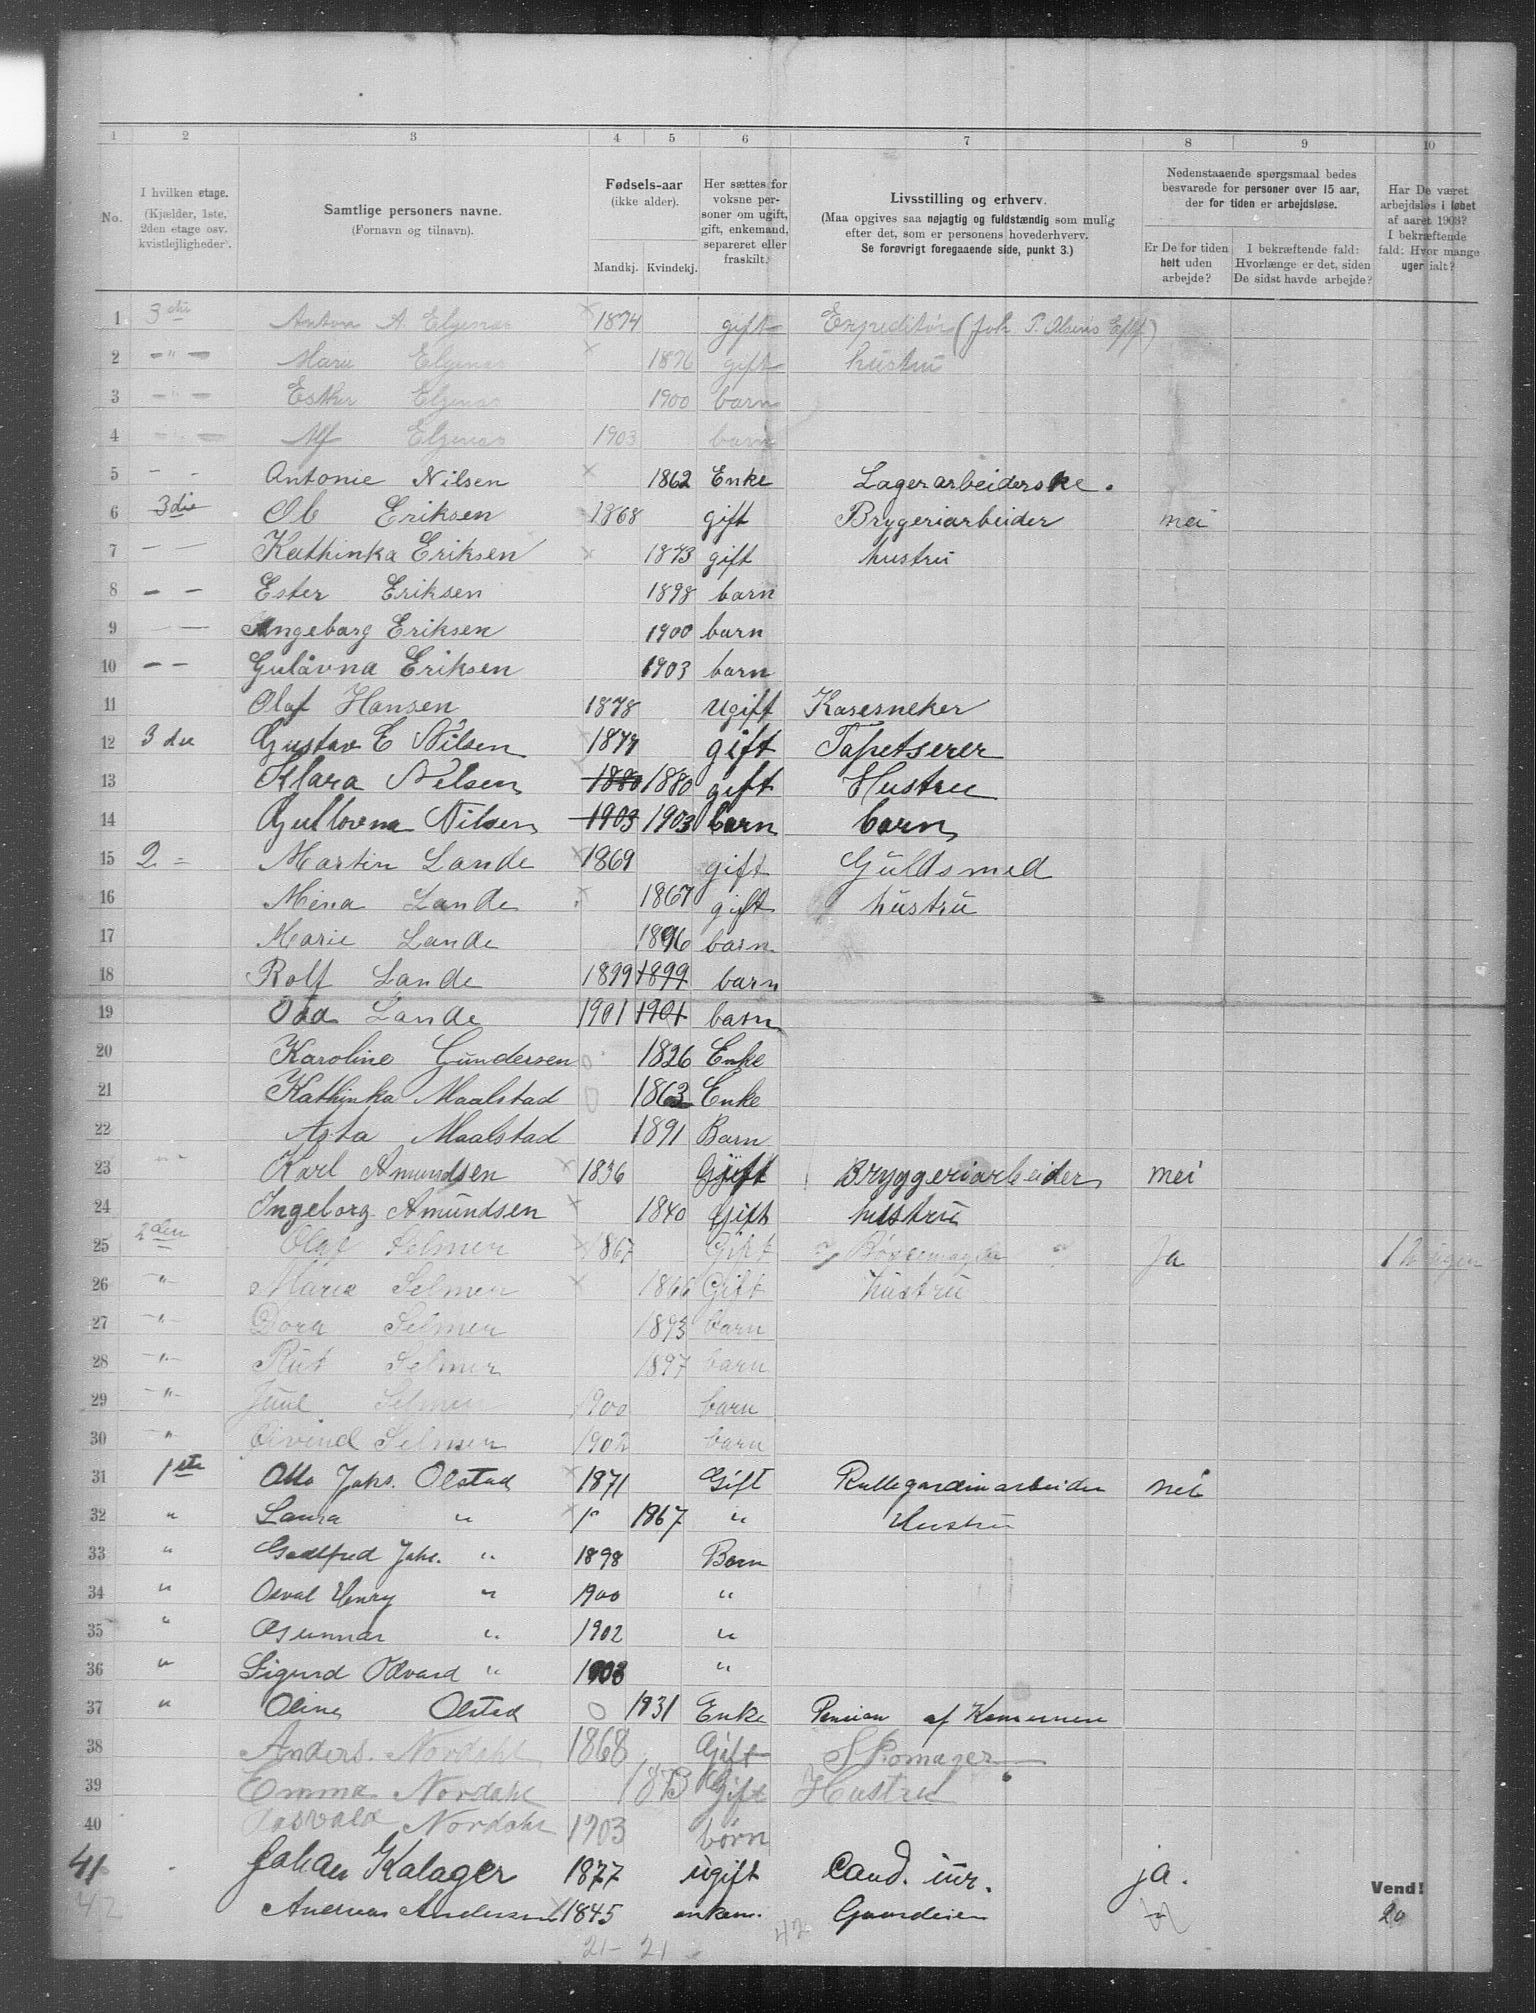 1 2 3 4 5 6 7 8 9 10
No. I hvilken etage. (Kjælder, 1ste, 2den etage osv. kvistlejligheder). Samtlige personers navne. (Fornavn og tilnavn). Fødsels-aar (ikke alder). Mandkj. Kvindekj. Her sættes for voksne personer om ugift, gift, enkemand, separeret eller fraskilt. Livsstilling og erhverv. (Maa opgives saa nøjagtig og fuldstændig som mulig efter det, som er personens hovederhverv. Se forøvrigt foregaaende side, punkt 3.) Nedenstaaende spørgsmaal bedes besvarede for personer over 15 aar, der for tiden er arbejdsløse. Er De for tiden helt uden arbejde? I bekræftende fald: Hvorlænge er det, siden De sidst havde arbejde? Har De været arbejdsløs i løbet af aaret 1903? I bekræftende fald: Hvor mange uger ialt?
1 3die Anton A. Elgenas × 1874 gift Expeditør (Joh. P. Olsens Eftf)
2 — " — Marie Elgenas × 1876 gift hustru
3 — " — Esther Elgenas 1900 barn
4 — " — Alf Elgenas 1903 barn
5 — — Antonie Nilsen × 1862 Enke Lagerarbeiderske.
6 3die Ole Eriksen 1868 gift Brygeriarbeider nei
7 — — Kathinka Eriksen × 1873 gift hustru
8 — — Ester Eriksen 1898 barn
9 — — Ingeborg Eriksen 1900 barn
10 — — Gulåvna Eriksen 1903 barn
11 Olaf Hansen 1878 Ugift Kasesneker
12 3die Gustav E Nilsen 1877 gift Tapetserer
13 Klara Nilsen 1880 1880 gift Hustru
14 Gullovna Nilsen 1903 1903 barn barn
15 2 = Martin Lande × 1869 gift Guldsmed
16 Mina Lande × 1867 gift hustru
17 Marie Lande 1896 barn
18 Rolf Lande 1899 1899 barn
19 Oda Lande 1901 1901 barn
20 Karoline Gundersen 0 1826 Enke
21 Kathinka Maalstad 0 1863 Enke
22 Asta Maalstad 1891 Barn
23 " " Karl Amundsen × 1836 Gift Bryggeriarbeider nei
24 Ingeborg Amundsen × 1840 Gift hustru
25 2den Olaf Selmer × 1867 Gift Børsemager Ja
26 — " — Marie Selmer × 1866 Gift hustru
27 — " — Dora Selmer 1893 barn
28 — " — Rut Selmer 1897 barn
29 — " — Juul Selmer 1900 barn
30 " Øivind Selmer 1902 barn
31 1ste Otto Johs. Olstad × 1871 Gift Rullegardinarbeider nei
32 " Laura " × 1867 " Hustru
33 " Godtfred Johs. " 1898 Barn
34 " Osval Henry " 1900 "
35 " Gunnar " 1902 "
36 " Sigurd Odvard " 1903 "
37 " Oline Olstad 0 1831 Enke Pension af Komunen
38 Anders. Nordahl 1868 Gift Skomager
39 Emma Nordahl 1873 Gift Hustru
40 Nordahl 1903 børn
41 Johan Kalager 1877 ugift Cand. iur. ja.
42 Andreas Andersen × 1845 enkem. Gaardeier
Vend!
20
21- 21 42